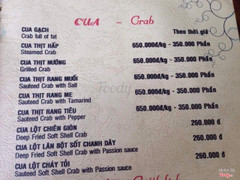 CUA - Crab
CUA GẠCH Theo thời giá
Crab full of fat
CUA THỊT HẤP 650.000đ/kg - 350.000 Phần
Steamed Crab
CUA THỊT NƯỚNG 650.000đ/kg - 350.000 Phần
Grilled Crab
CUA THỊT RANG MUỐI 650.000đ/kg - 350.000 Phần
Sauteed Crab with Salt
CUA THỊT RANG ME 650.000đ/kg - 350.000 Phần
Sauteed Crab with Tamarind
CUA THỊT RANG TIÊU 650.000đ/kg - 350.000 Phần
Sauteed Crab with Pepper
CUA LỘT CHIÊN GIÒN 260.000 đ
Deep Fried Soft Shell Crab
CUA LỘT LĂN BỘT SỐT CHANH DÂY 260.000 đ
Deep Fried Soft Shell Crab with Passion sauce
CUA LỘT CHÁY TỎI 260.000 đ
Sauteed Soft Shell Crab with Passion sauce
foody